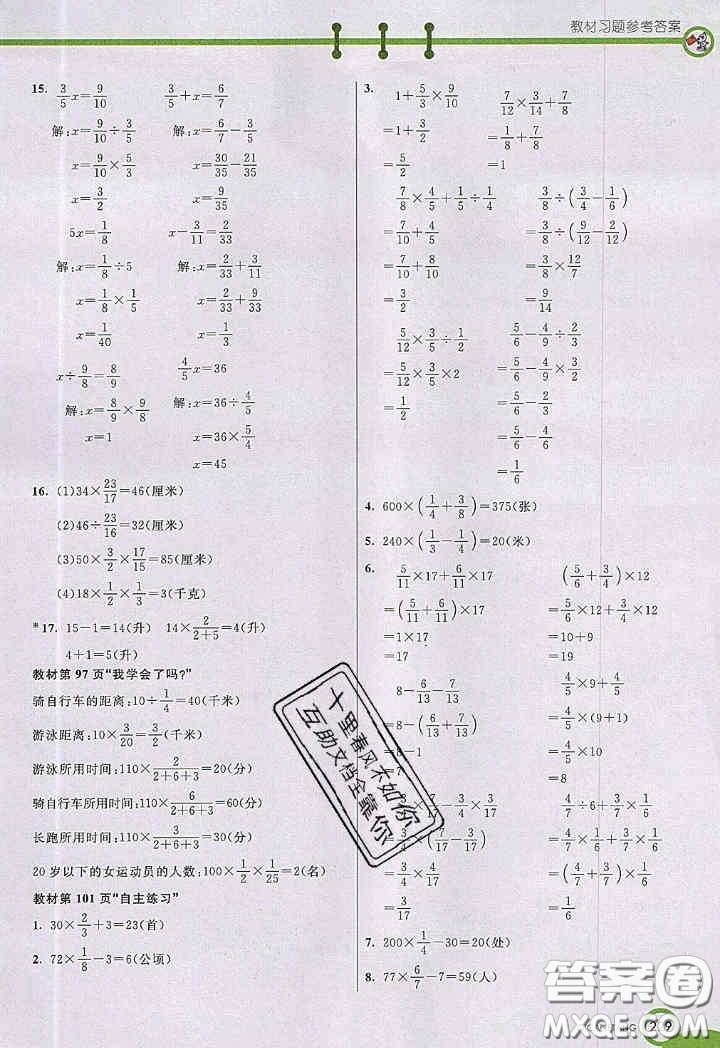 教材习题参考答案
15. 3/5 x=9/10    3/5+x=6/7
解:x=9/10÷3/5    解:x=6/7-3/5
x=9/10×5/3    x=30/35-21/35
x=3/2    x=9/35
5x=1/8    x-3/11=2/33
解:x=1/8÷5    解:x=2/33+3/11
x=1/8×1/5    x=2/33+9/33
x=1/40    x=1/3
x÷9/8=8/9    4/5 x=36
解:x=8/9×9/8    解:x=36÷4/5
x=1    x=36×5/4
x=45
16. (1)34×23/17=46(厘米)
(2)46÷23/16=32(厘米)
(3)50×3/2×17/15=85(厘米)
(4)18×1/2×1/3=3(千克)
*17. 15-1=14(升)  14×2/(2+5)=4(升)
4+1=5(升)
教材第 97 页“我学会了吗?”
骑自行车的距离:10÷1/4=40(千米)
游泳距离:10×3/20=3/2(千米)
游泳所用时间:110×2/(2+6+3)=20(分)
骑自行车所用时间:110×6/(2+6+3)=60(分)
长跑所用时间:110×3/(2+6+3)=30(分)
20 岁以下的女运动员的人数:100×1/2×1/25=2(名)
教材第 101 页“自主练习”
1. 30×2/3+3=23(首)
2. 72×1/8-3=6(公顷)
3. 1+5/3×9/10    7/10×3/14+7/8
=1+3/2    =1/8+7/8
=5/2    =1
7/8×4/5+1/5÷1/4    3/8÷(3/4-1/6)
=7/10+4/5    =3/8÷(9/12-2/12)
=3/2    =3/8×12/7
=9/14
5/12×3/5÷1/2    5/6-4/9÷2/3
=5/12×3/5×2    =5/6-4/9×3/2
=1/2    =5/6-2/3
=1/6
4. 600×(1/4+3/8)=375(张)
5. 240×(1/3-1/4)=20(米)
6. 5/11×17+6/11×17    (5/6+3/4)×12
=(5/11+6/11)×17    =5/6×12+3/4×12
=1×17    =10+9
=17    =19
8-6/13-7/13    4/5×9+4/5
=8-(6/13+7/13)    =4/5×(9+1)
=8-1    =4/5×10
=8
4/7×1/6+3/7×1/6
7. 200×1/4-30=20(处)
8. 77×6/7-7=59(人)
十里春风不如你
互助文档全靠你
答案卷
MXQE.COM